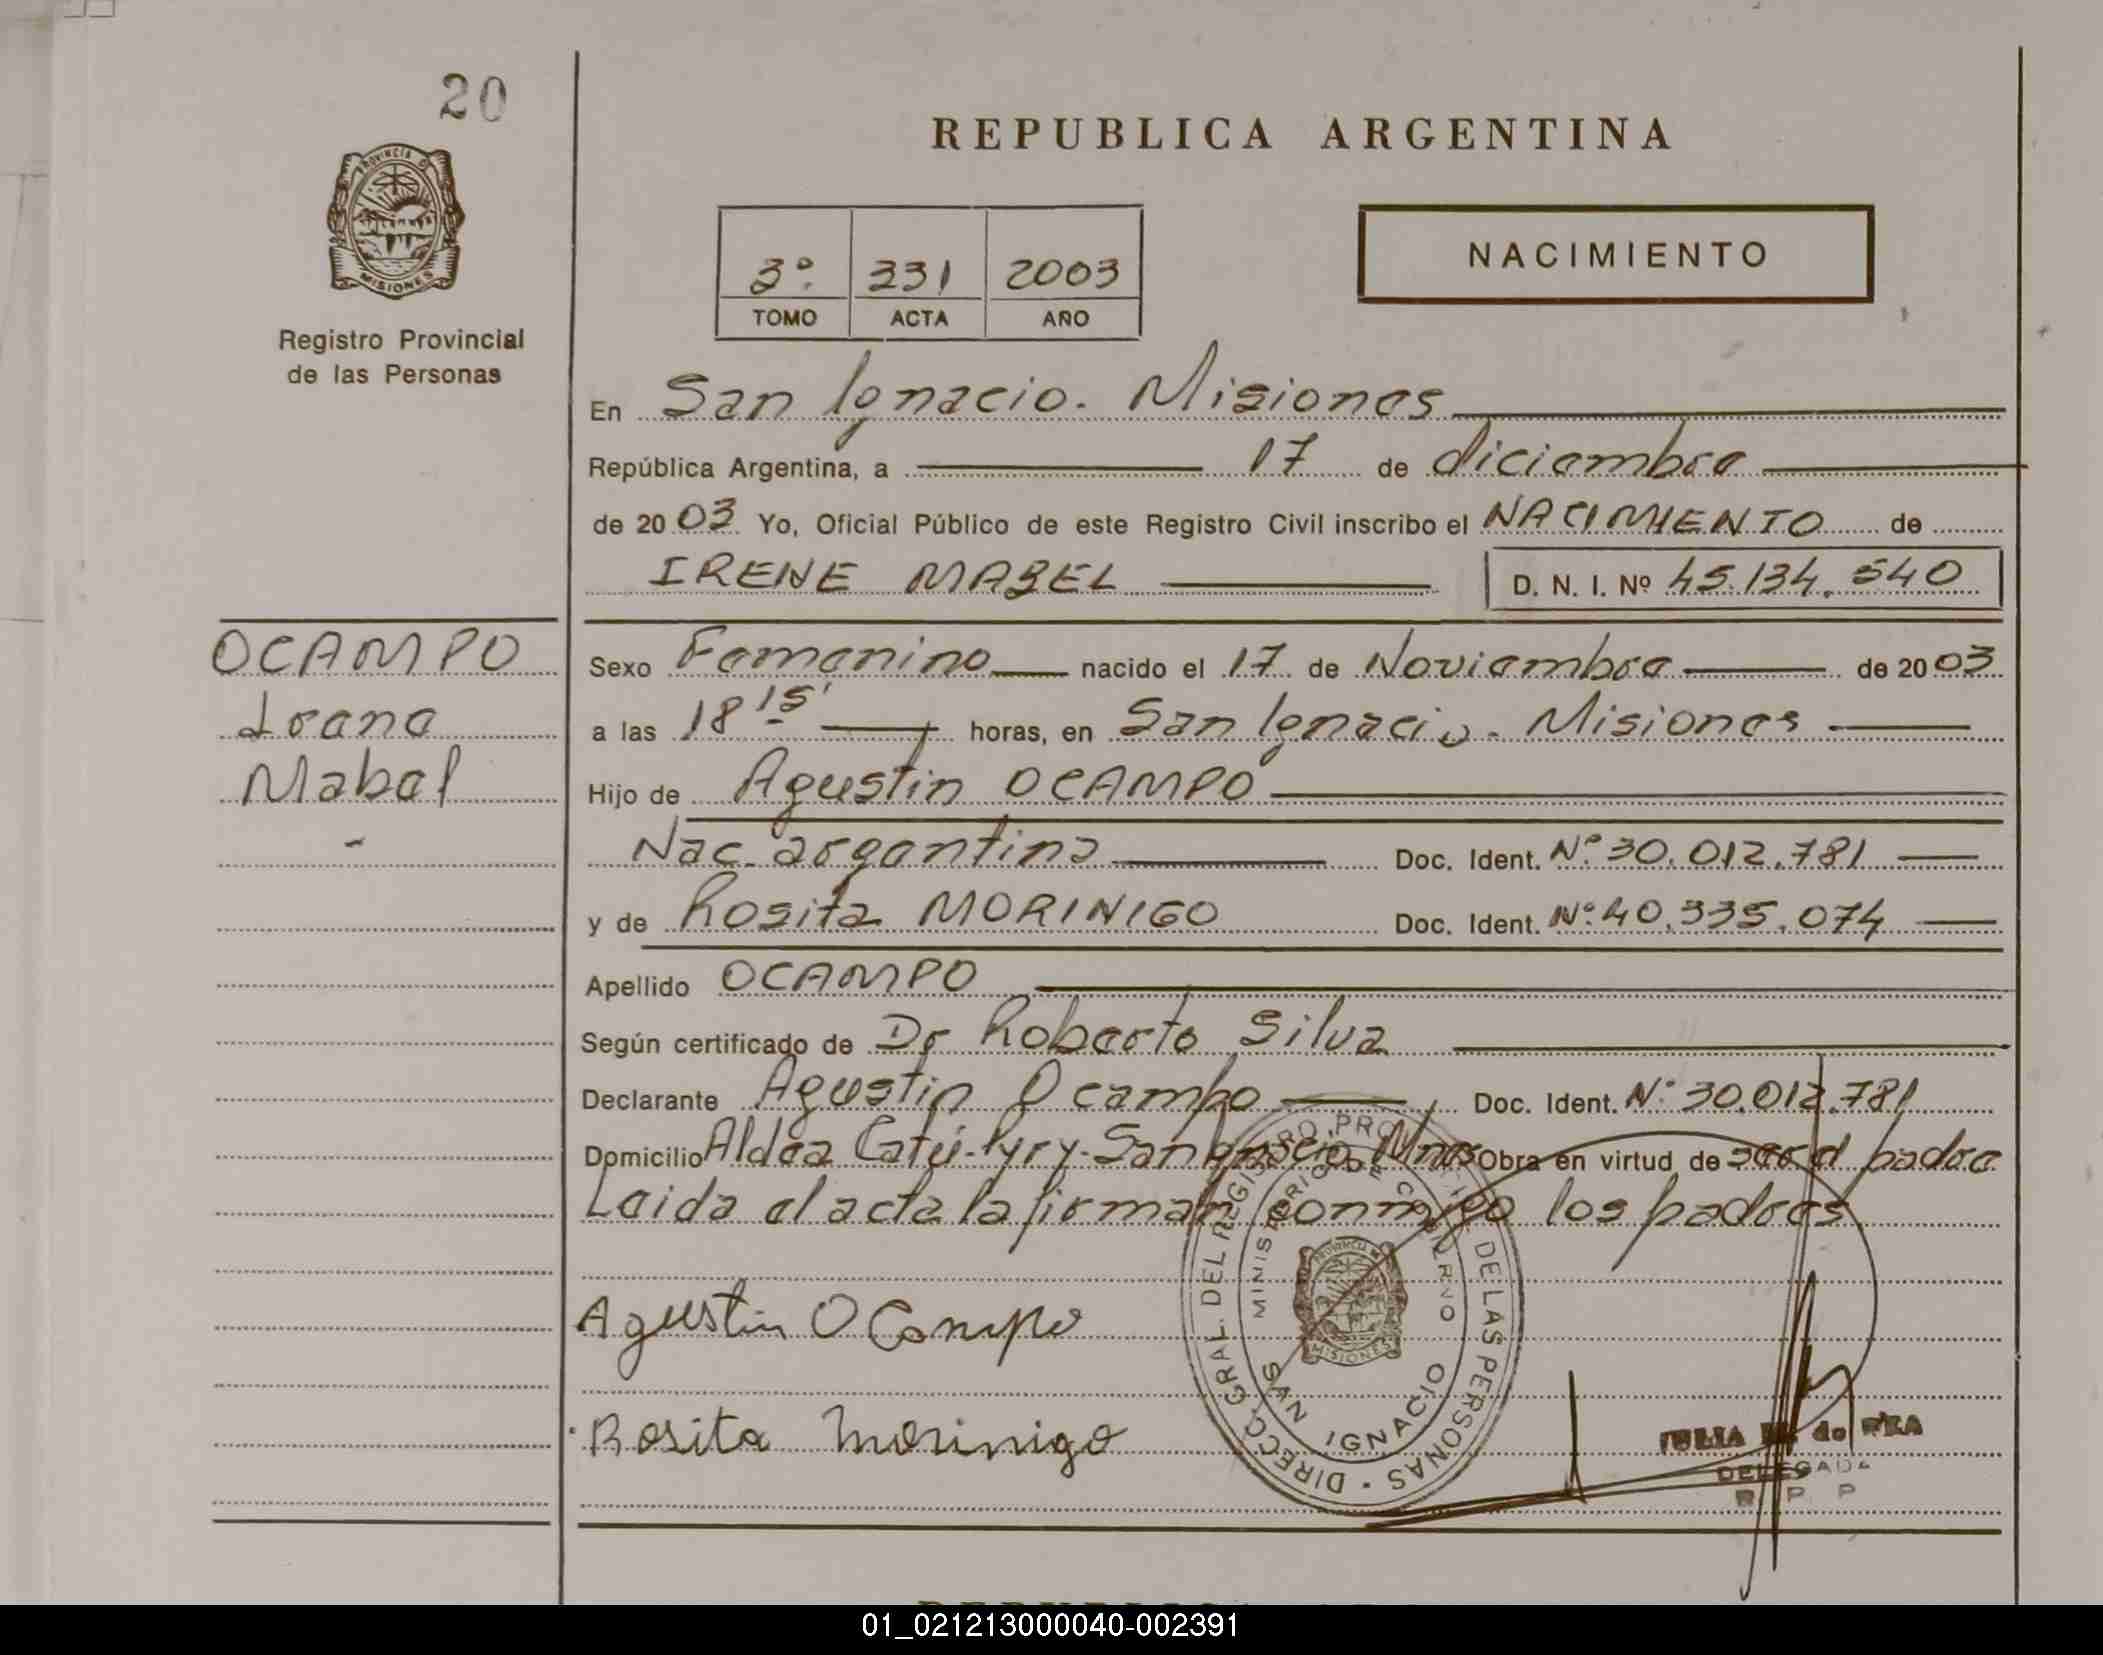 20
REPUBLICA ARGENTINA
PROVINCIA D
MISIONES
Registro Provincial
de las Personas
NACIMIENTO
3º 331 2003
TOMO ACTA AÑO
En San Ignacio. Misiones
República Argentina, a 17 de diciembre
de 20 03 Yo, Oficial Público de este Registro Civil inscribo el NACIMIENTO de
IRENE MABEL D. N. I. Nº 45.134.540
OCAMPO
Irene
Mabel
Sexo Femenino nacido el 17 de Noviembre de 20 03
a las 18 15' horas, en San Ignacio. Misiones
Hijo de Agustin OCAMPO
Nac. argentina Doc. Ident. Nº 30.012.781
y de Rosita MORINIGO Doc. Ident. Nº 40.335.074
Apellido OCAMPO
Según certificado de Dr Roberto Silva
Declarante Agustin Ocampo Doc. Ident. Nº 30.012.781
Domicilio Aldea Catú-Pyry-San Ignacio Mnes Obra en virtud de ser el padre
Leida el acta la firman conmigo los padres
Agustin Ocampo
Rosita Morinigo
DIRECC. GRAL. DEL REGISTRO PROV. DE LAS PERSONAS
MINISTERIO DE GOBIERNO
SAN IGNACIO
MISIONES
JULIA de REA
DELEGADA
R. P. P
01_021213000040-002391